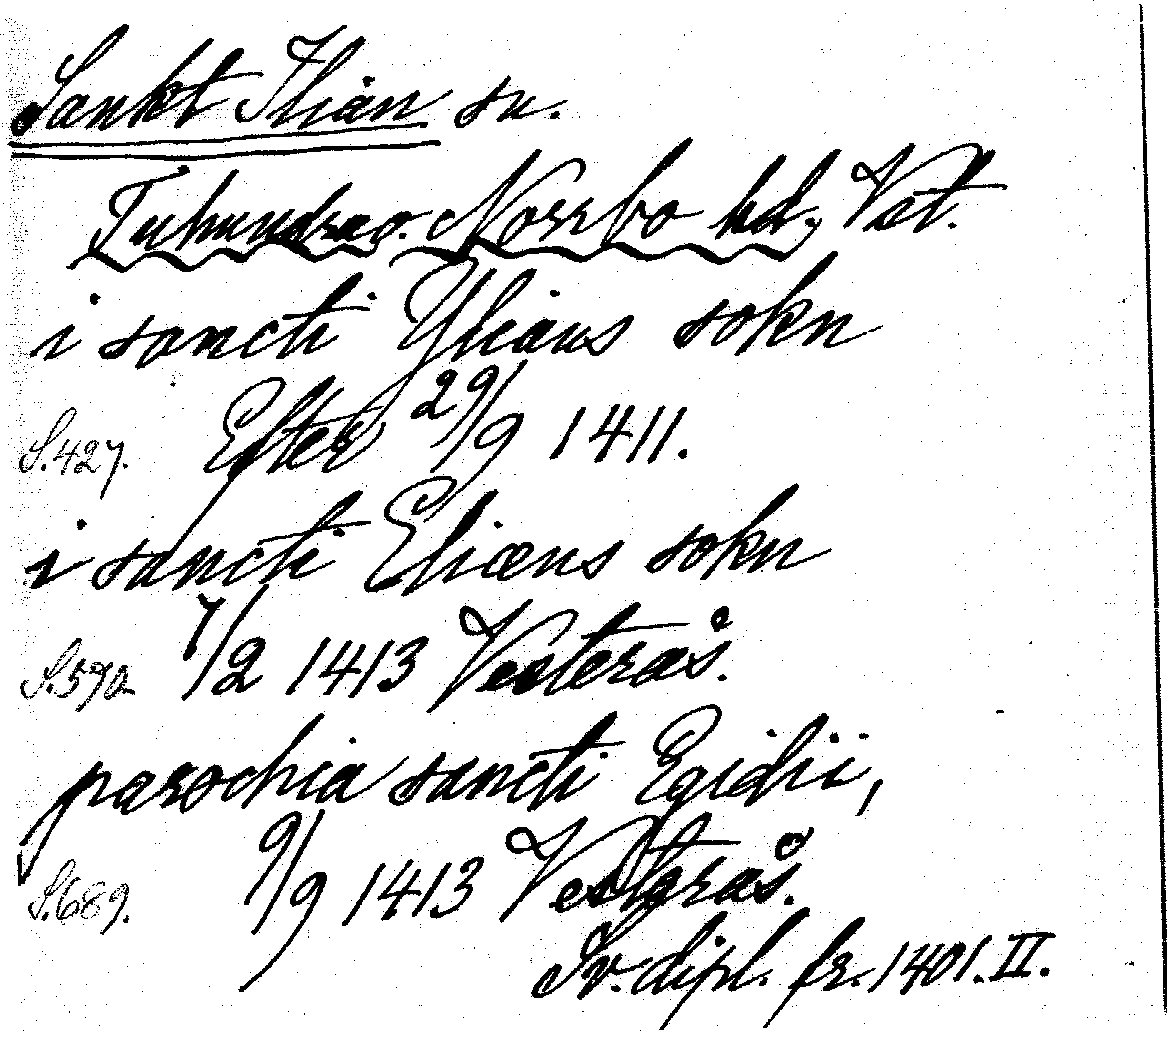 Sankt Ilian sn.
Tuhundrao. Norrbo hd, Vstl.
i sancti Ylians sokn
S.427. Efter 29/9 1411.
i sancti Eliæns sokn
S.570. 7/2 1413 Vesterås.
parochia sancti Egidii,
S.689. 9/9 1413 Vestgrås.
Sv. dipl. fr. 1401. II.